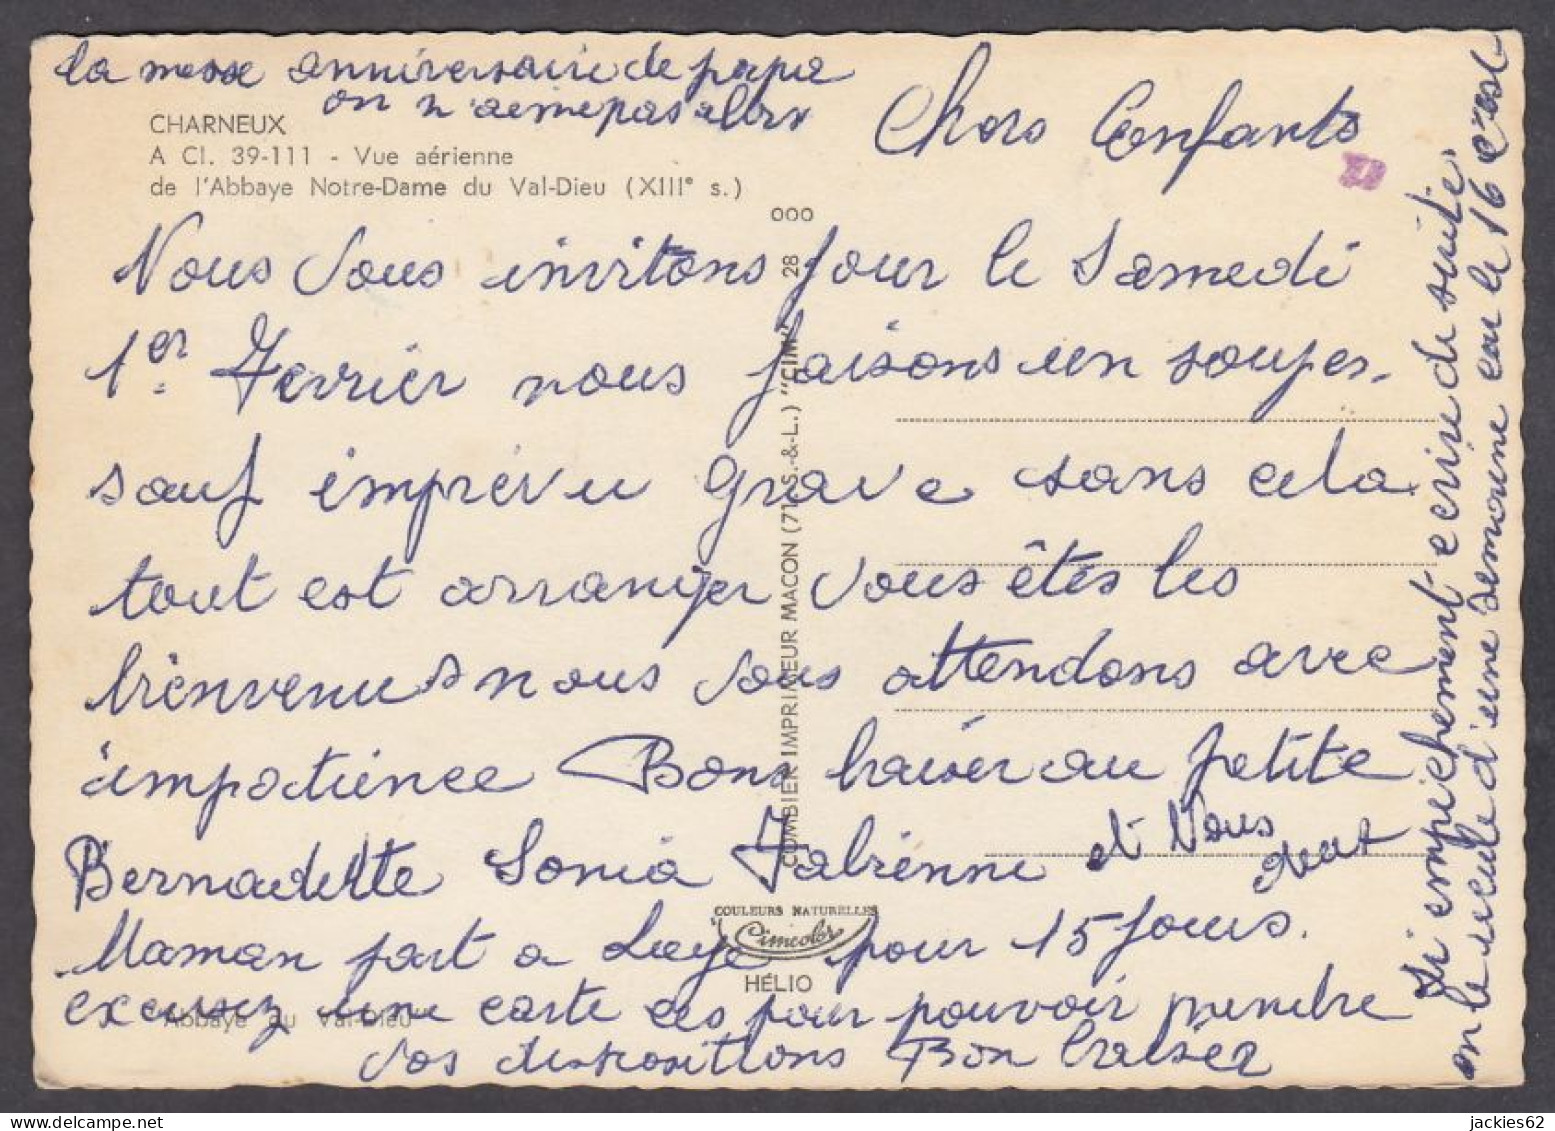 la messe anniversaire de papa
on n'aime pas alors
CHARNEUX
A Cl. 39-111 - Vue aérienne
de l'Abbaye Notre-Dame du Val-Dieu (XIIIe s.)
Chers Enfants
Nous Vous invitons pour le Samedi
1er Fevrier nous faisons un souper.
sauf imprévu grave sans cela
tout est arranger Vous êtes les
bienvenus nous Vous attendons avec
impatience Bons baiser au petite
Bernadette Sonia Fabienne et Vous
Maman part a Liege pour 15 jours.
excussez une carte ces pour pouvoir prendre
vos dispositions Bon baiser
Si empechement ecrire de suite.
on le recule d'une semaine car le 16 c'est
COMBIER IMPRIMEUR MACON (71 S.-&-L.) "CIM" 28 000
COULEURS NATURELLES
Cimcolor
HÉLIO
Abbaye du Val-Dieu
jackies62